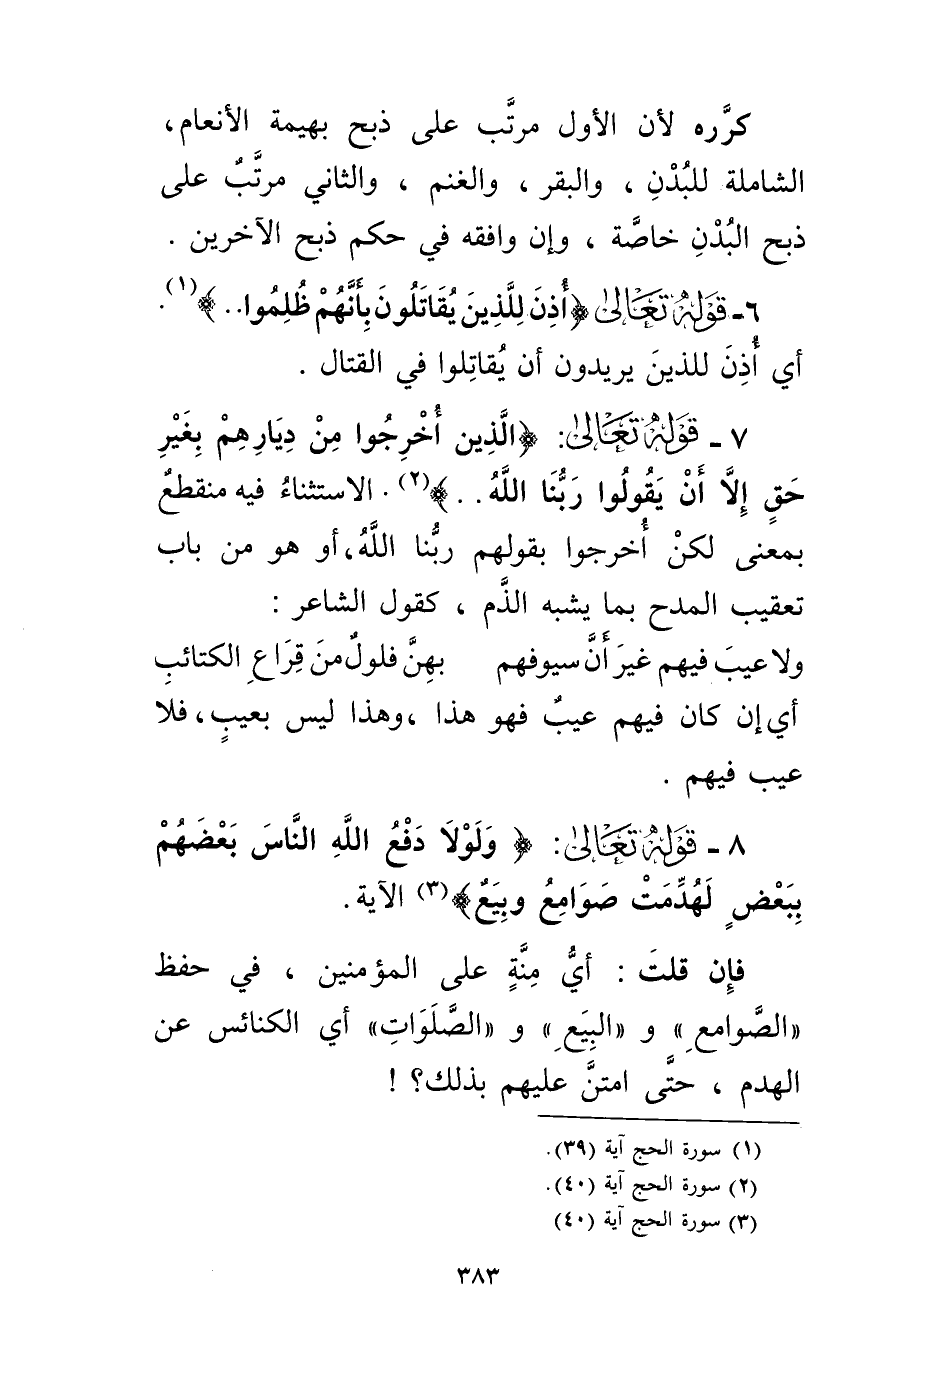 كرَّره لأن الأول مرتَّب على ذبح بهيمة الأنعام،
الشاملة للبُدْنِ ، والبقر ، والغنم ، والثاني مرتَّبٌ على
ذبح البُدْنِ خاصَّة ، وإن وافقه في حكم ذبح الآخرين .
٦ـ قَوْلُهُ تَعَالَىٰ ﴿أُذِنَ لِلَّذِينَ يُقَاتَلُونَ بِأَنَّهُمْ ظُلِمُوا..﴾(١).
أي أُذِنَ للذينَ يريدون أن يُقاتِلوا في القتال .
٧ ـ قَوْلُهُ تَعَالَىٰ: ﴿الَّذِين أُخْرِجُوا مِنْ دِيَارِهِمْ بِغَيْرِ
حَقٍ إِلَّا أَنْ يَقُولُوا رَبُّنَا اللَّهُ . .﴾(٢) . الاستثناءُ فيه منقطعٌ
بمعنى لكنْ أُخرجوا بقولهم ربُّنا اللَّهُ،أو هو من باب
تعقيب المدح بما يشبه الذَّم ، كقول الشاعر :
ولا عيبَ فيهم غيرَ أَنَّ سيوفهم بهِنَّ فلولٌ منَ قِرَاعِ الكتائبِ
أي إن كان فيهم عيبٌ فهو هذا ،وهذا ليس بعيبٍ،فلا
عيب فيهم .
٨ ـ قَوْلُهُ تَعَالَىٰ: ﴿ وَلَوْلَا دَفْعُ اللَّهِ النَّاسَ بَعْضَهُمْ
بِبَعْضٍ لَهُدِّمَتْ صَوَامِعُ وبِيَعٌ﴾(٣) الآية.
فإِن قلتَ : أيُّ مِنَّةٍ على المؤمنين ، في حفظ
«الصَّوامعِ» و «البِيَعِ» و «الصَّلَوَاتِ» أي الكنائس عن
الهدم ، حتَّى امتنَّ عليهم بذلك؟ !
(١) سورة الحج آية (٣٩).
(٢) سورة الحج آية (٤٠).
(٣) سورة الحج آية (٤٠)
٣٨٣